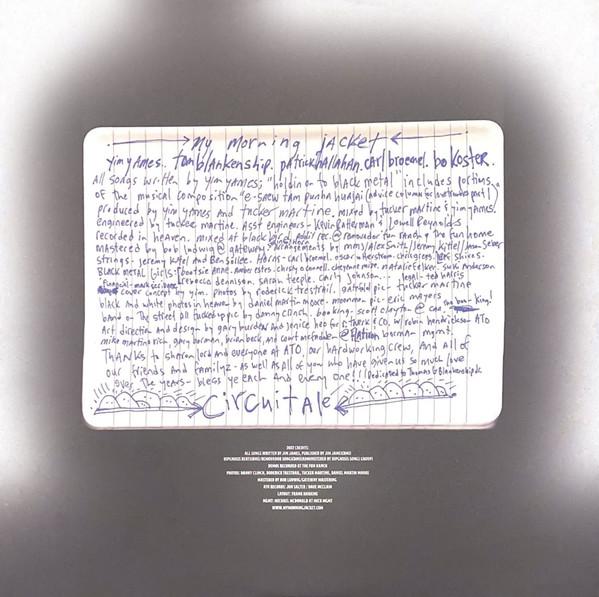 My morning jacket
yim yames. tom blankenship. patrick hallahan. carl broemel. bo koster.
All songs written by yim yames; "holding on to black metal" includes portions
of the musical composition "e-saew tam punha huajai (advice column for love troubles part 1)
produced by yim yames and tucker martine. mixed by tucker martine & yim yames.
engineered by tucker martine. Asst engineers - Kevin Ratterman & Lowell Reynolds
recorded in heaven. mixed at blackbird. addit'l rec. @ removador fun ranch & the fun home
mastered by bob ludwig @ gateway. arrangements by mmj/Alex Smith/Jeremy Kittel/Jason Seber
strings - jeremy kittel and Ben Sollee. Horns - carl broemel. oscar utterstrom. chris greens. jeri shires.
BLACK METAL Girls: bootsie anne. amber estes. christy o'connell. cheyenne mize. natalie felker. suki anderson
rebecca dennison. sarah teeple. carly johnson... legal - ted harris
cover concept by yim. photos by roderick trestrail. gatefold pic - tucker martine
black and white photos in heaven by daniel martin moore. moonman pic - eric mayers
band on the street all tucked up pic by danny clinch. booking - scott clayton @ caa. king!
Art direction and design by gary burden and jenice heo for r. twerk & co. w/ robin hendrickson - ATO
mike martinovich, gary borman, brian beck, and court mcfadde - @ borman mgmt.
THANKS to sharon lord and everyone at ATO, our hardworking crew, and all of
our friends and familyz - as well as all of you who have given us so much love
over the years - bless ye each and every one!!! Dedicated to Thomas G Blankenship Jr.
Circuitale
2007 CREDITS:
ALL SONGS WRITTEN BY JIM JAMES, PUBLISHED BY JIM JAMES(BMI)
DEMOS RECORDED AT THE FUN RANCH
PHOTOS: DANNY CLINCH, RODERICK TRESTRAIL, TUCKER MARTINE, DANIEL MARTIN MOORE
MASTERED BY BOB LUDWIG/GATEWAY MASTERING
ATO RECORDS: JON SALTER / DAVE MCCLAIN
LAYOUT: FRANK HARKINS
MGMT: MICHAEL MCDONALD AT MICK MGMT
WWW.MYMORNINGJACKET.COM